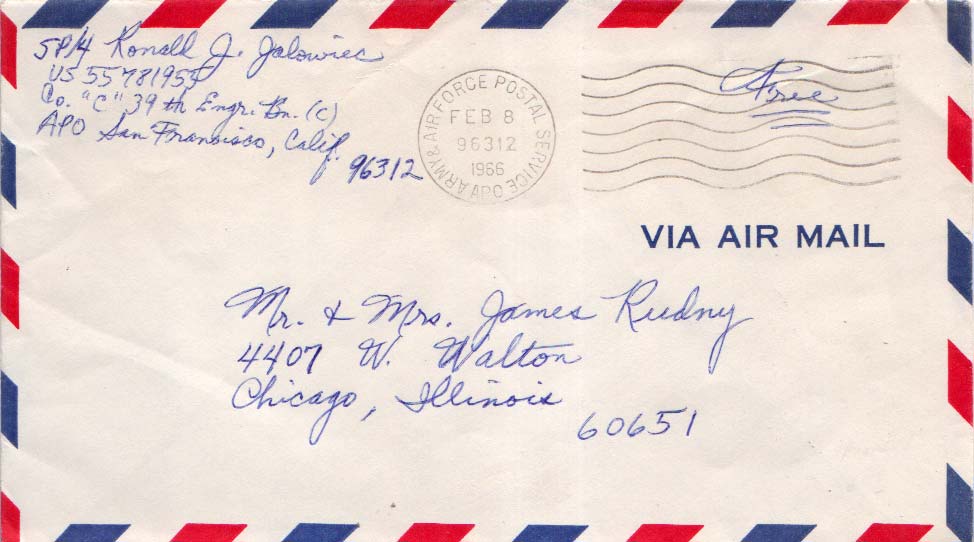 SP/4 Ronald J. Jalowiec
US 55781955
Co. "C" 39th Engr. Bn. (C)
APO San Fransisco, Calif.
96312
ARMY & AIR FORCE POSTAL SERVICE APO
FEB 8
96312
1966
Free
VIA AIR MAIL
Mr. & Mrs. James Rudny
4407 W. Walton
Chicago, Illinois
60651